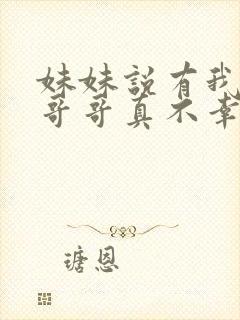 妹妹說有我
哥哥真不幸
瑭恩